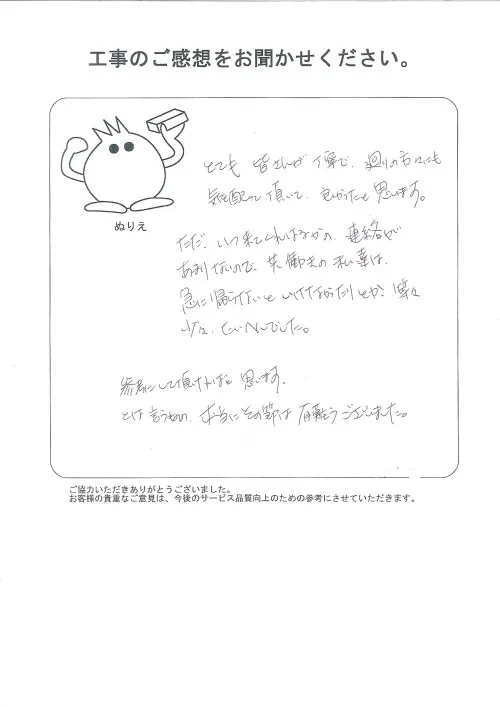 工事のご感想をお聞かせください。
ぬりえ
とても 皆さんが 丁寧で、廻りの方々にも
気を配って頂いて、良かったと思います。
ただ、いつ来てくれるかの、連絡が
あまりないので、共働きの私達は、
急に帰らないといけなかったりとか、等々
少々、たいへんでした。
参考にして頂ければと思います。
とは言うものの、本当にその節は有難うございました。
ご協力いただきありがとうございました。
お客様の貴重なご意見は、今後のサービス品質向上のための参考にさせていただきます。